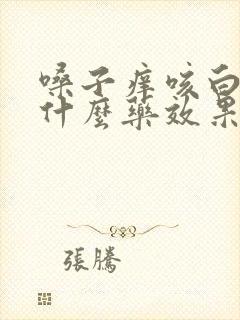 嗓子痒咳白
什麼藥效果
張騰